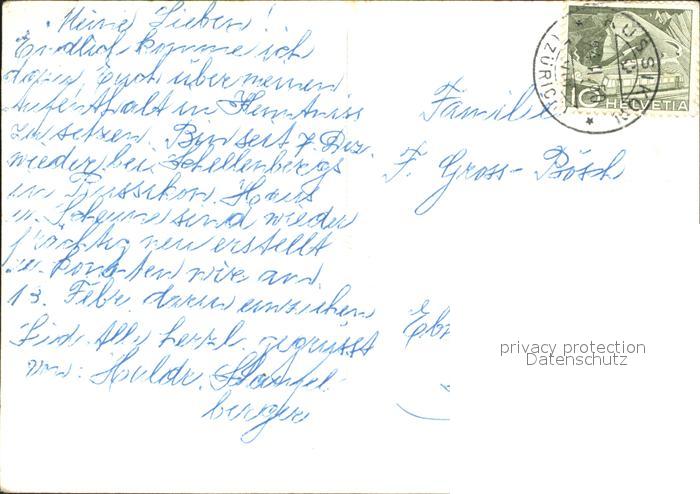 Meine Lieben!
Endlich komme ich
dazu Euch über meinen
Aufenthalt in Kenntniss
zu setzen. Bin seit 7. Dez.
wieder bei Schellenbergs
in Russikon. Haus
u. Scheune sind wieder
prächtig neu erstellt
u. konnten wir am
13. Febr. darin einziehen
Sind Alle herzl. gegrüsst
von: Huldr.
berger
RUSSIKON
(ZÜRICH)
10 HELVETIA
Familie
F. Gross-Bösch
Ebn
privacy protection
Datenschutz